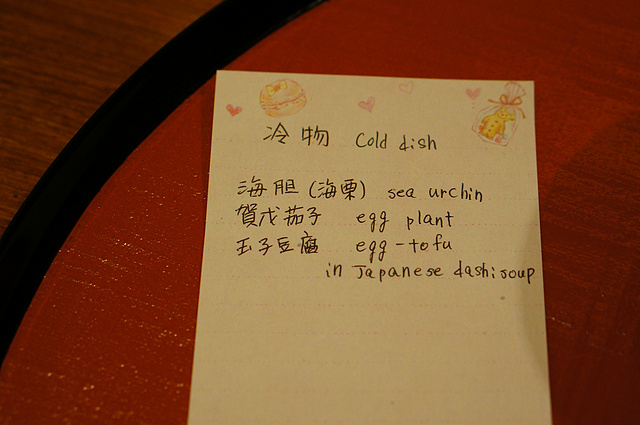 冷物 Cold dish
海胆 (海栗) sea urchin
賀茂茄子 egg plant
玉子豆腐 egg-tofu
in Japanese dashi soup